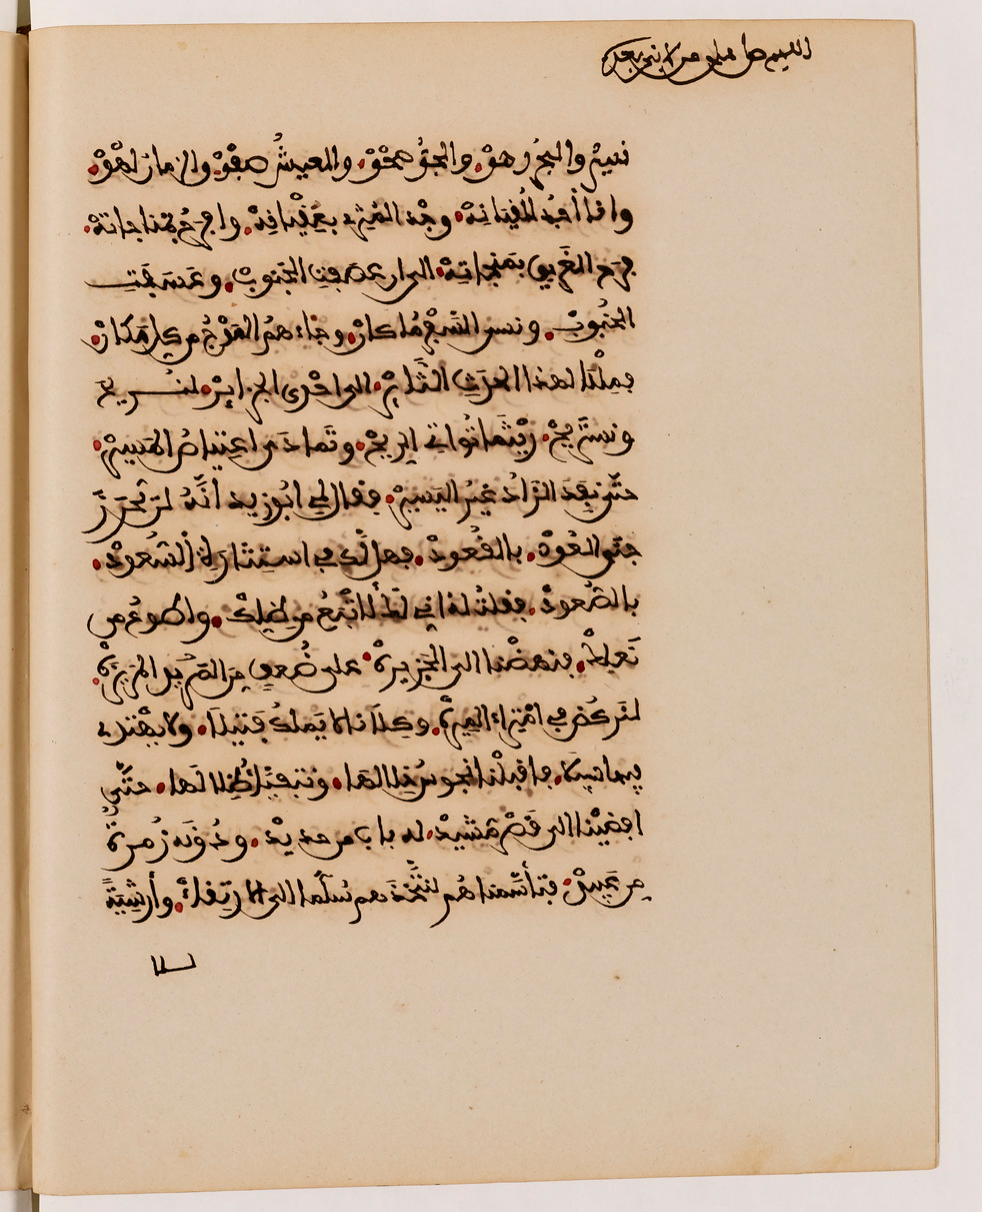 اللهم صل على من لا نبي بعده
نسير والبحر رهو والجو صحو والعيش صفو والزمان لهو
وانا أجد للقيانه وجد المثرى بعقيانه وافرح بمناجاته
فرح الغريق بمنجاته الى ان عصفت الجنوب وعسفت
الجنوب ونسى السفر ما كان وجاءهم الموج من كل مكان
فملنا لهذا الحدث الثاير الى احدى الجزاير لنريح
ونستريح ريثما تواتي الريح وتمادى اعتياص المسير
حتى نفد الزاد غير اليسير فقال لي ابو زيد انه لن يحرز
جنى العود بالقعود فهل لك في استثارة السعود
بالصعود فقلت له اني لك لاتبع من ظلك واطوع من
نعلك فنهضنا الى الجزيرة على ضعف من المريرة
لنركض في امتراء الميرة وكلانا لا يملك فتيلا ولا يهتدى
فيها سبيلا فاقبلنا نجوس خلالها ونتفيا ظلالها حتى
افضينا الى قصر مشيد له باب من حديد ودونه زمرة
من عبيد فناسمناهم لنتخذهم سلما الى الارتقاء وأرشية
للا